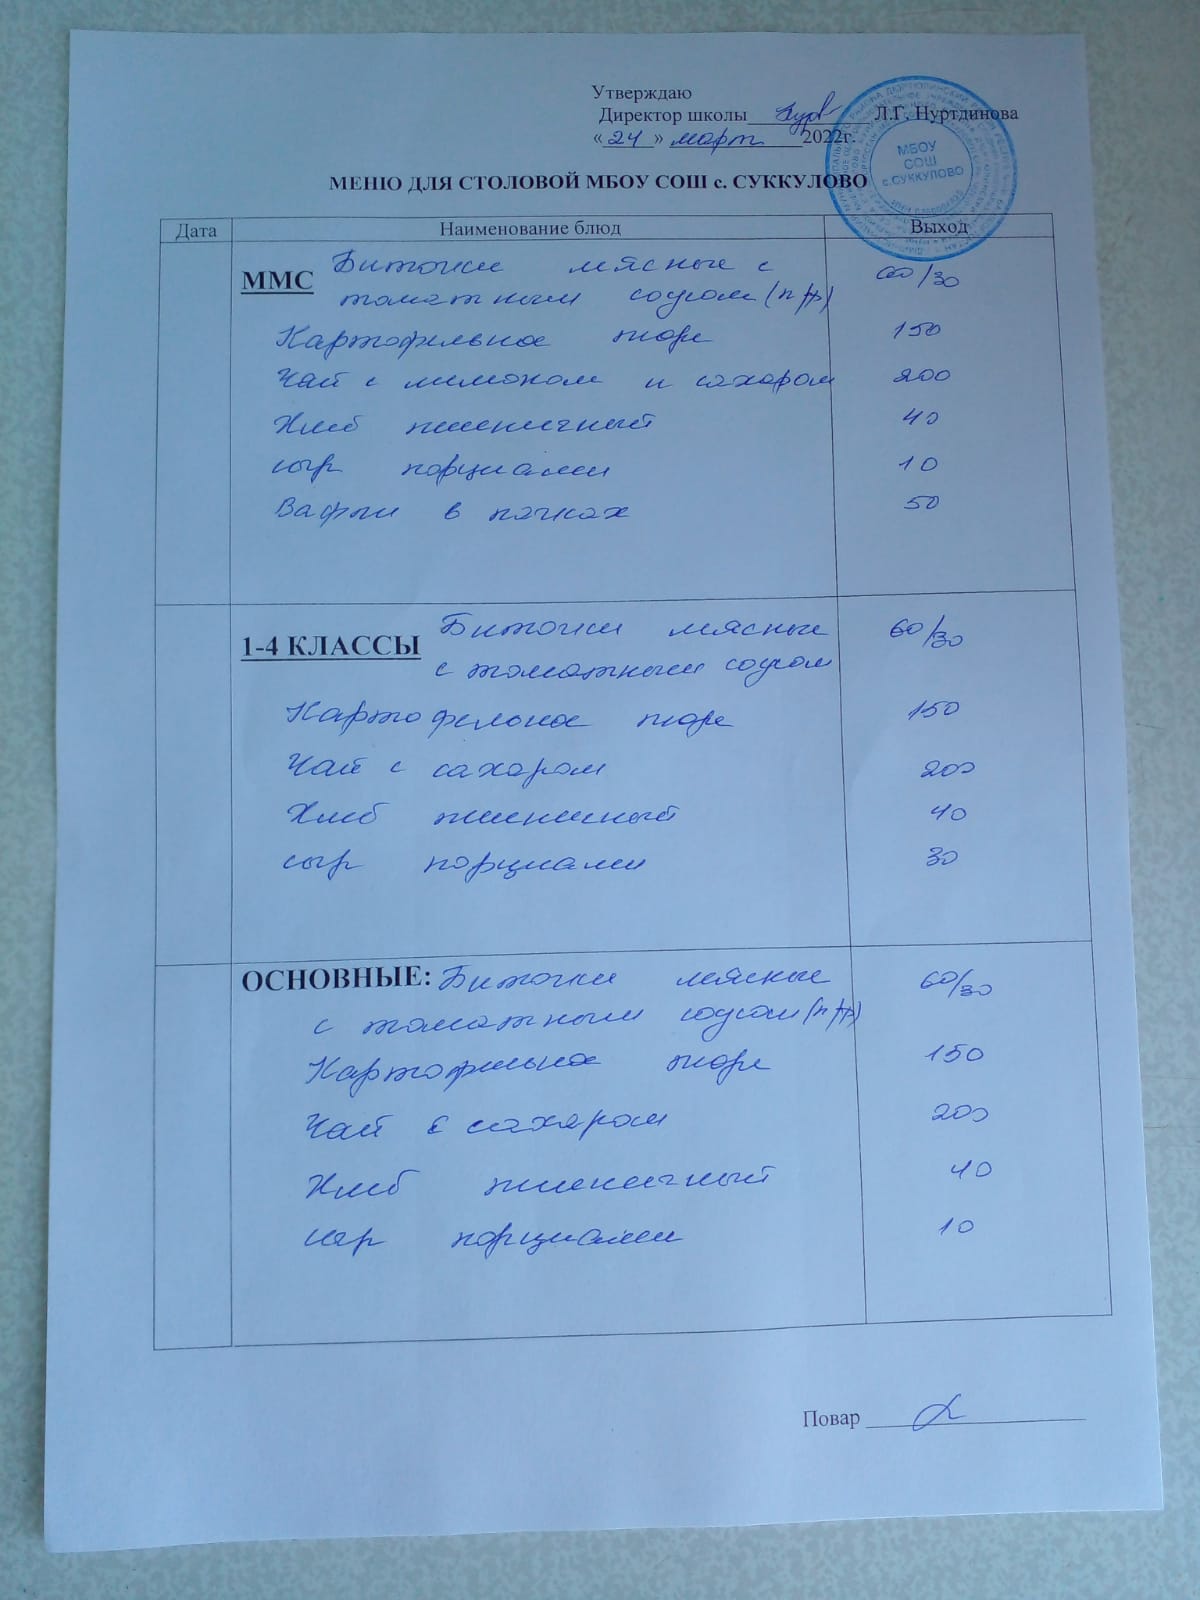 Утверждаю
Директор школы Л.Г. Нуртдинова
«24» март 2022г.
МБОУ
СОШ
с.СУККУЛОВО
МЕНЮ ДЛЯ СТОЛОВОЙ МБОУ СОШ с. СУККУЛОВО
Дата Наименование блюд Выход
ММС Биточки мясные с 60/30
томатным соусом (п/ф)
Картофельное пюре 150
Чай с лимоном и сахаром 200
Хлеб пшеничный 40
сыр порциями 10
Вафли в пачках 50
1-4 КЛАССЫ Биточки мясные 60/30
с томатным соусом
Картофельное пюре 150
Чай с сахаром 200
Хлеб пшеничный 40
сыр порциями 30
ОСНОВНЫЕ: Биточки мясные 60/30
с томатным соусом (п/ф)
Картофельное пюре 150
Чай с сахаром 200
Хлеб пшеничный 40
сыр порциями 10
Повар